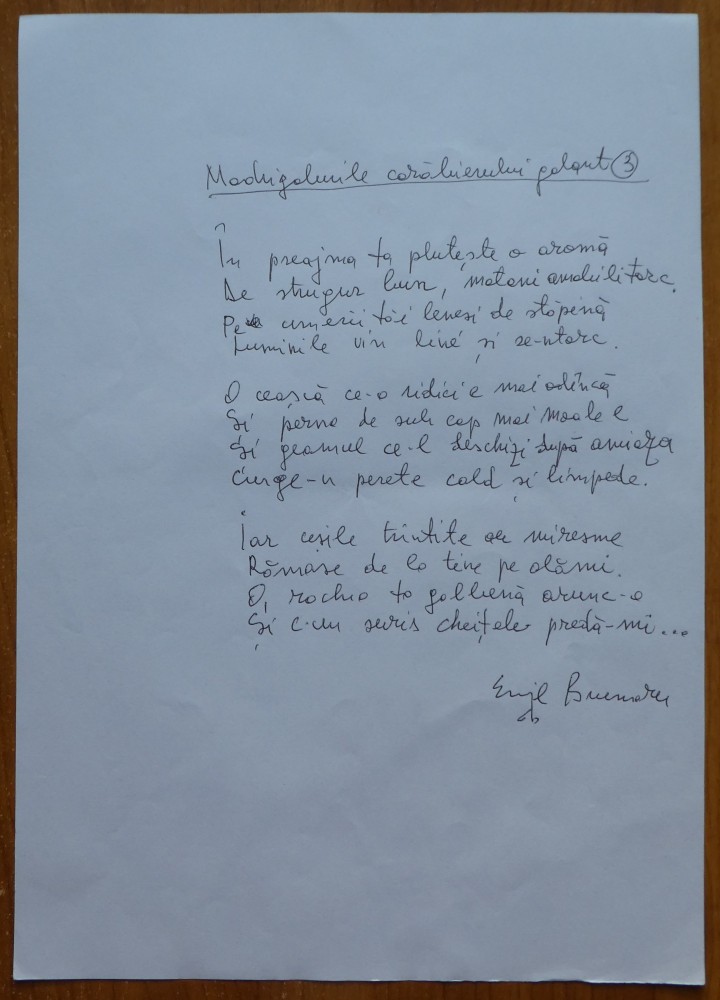 Madrigalurile carabierului galant 3
În preajma ta plutește o aromă
De strugur bun, motani amabili torc,
Pe umerii tăi leneși de stăpînă
Luminile vin line și se-ntorc.
O ceașcă ce-o ridici e mai adîncă
Și perna de sub cap mai moale e
Și geamul ce-l deschizi după amiaza
Curge-n perete cald și limpede.
Iar ușile trîntite au miresme
Rămase de la tine pe alămi.
O, rochia ta galbenă arunc-o
Și c-un surîs cheițele predă-mi...
Emil Brumaru